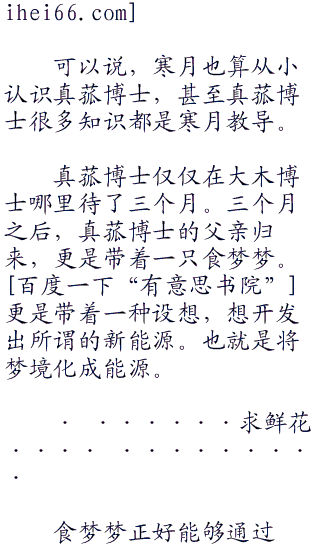 ihei66.com]
可以说，寒月也算从小
认识真菰博士，甚至真菰博
士很多知识都是寒月教导。
真菰博士仅仅在大木博
士哪里待了三个月。三个月
之后，真菰博士的父亲归
来，更是带着一只食梦梦。
[百度一下“有意思书院”]
更是带着一种设想，想开发
出所谓的新能源。也就是将
梦境化成能源。
· · · · · · ·求鲜花
· · · · · · · · · · · · ·
·
食梦梦正好能够通过